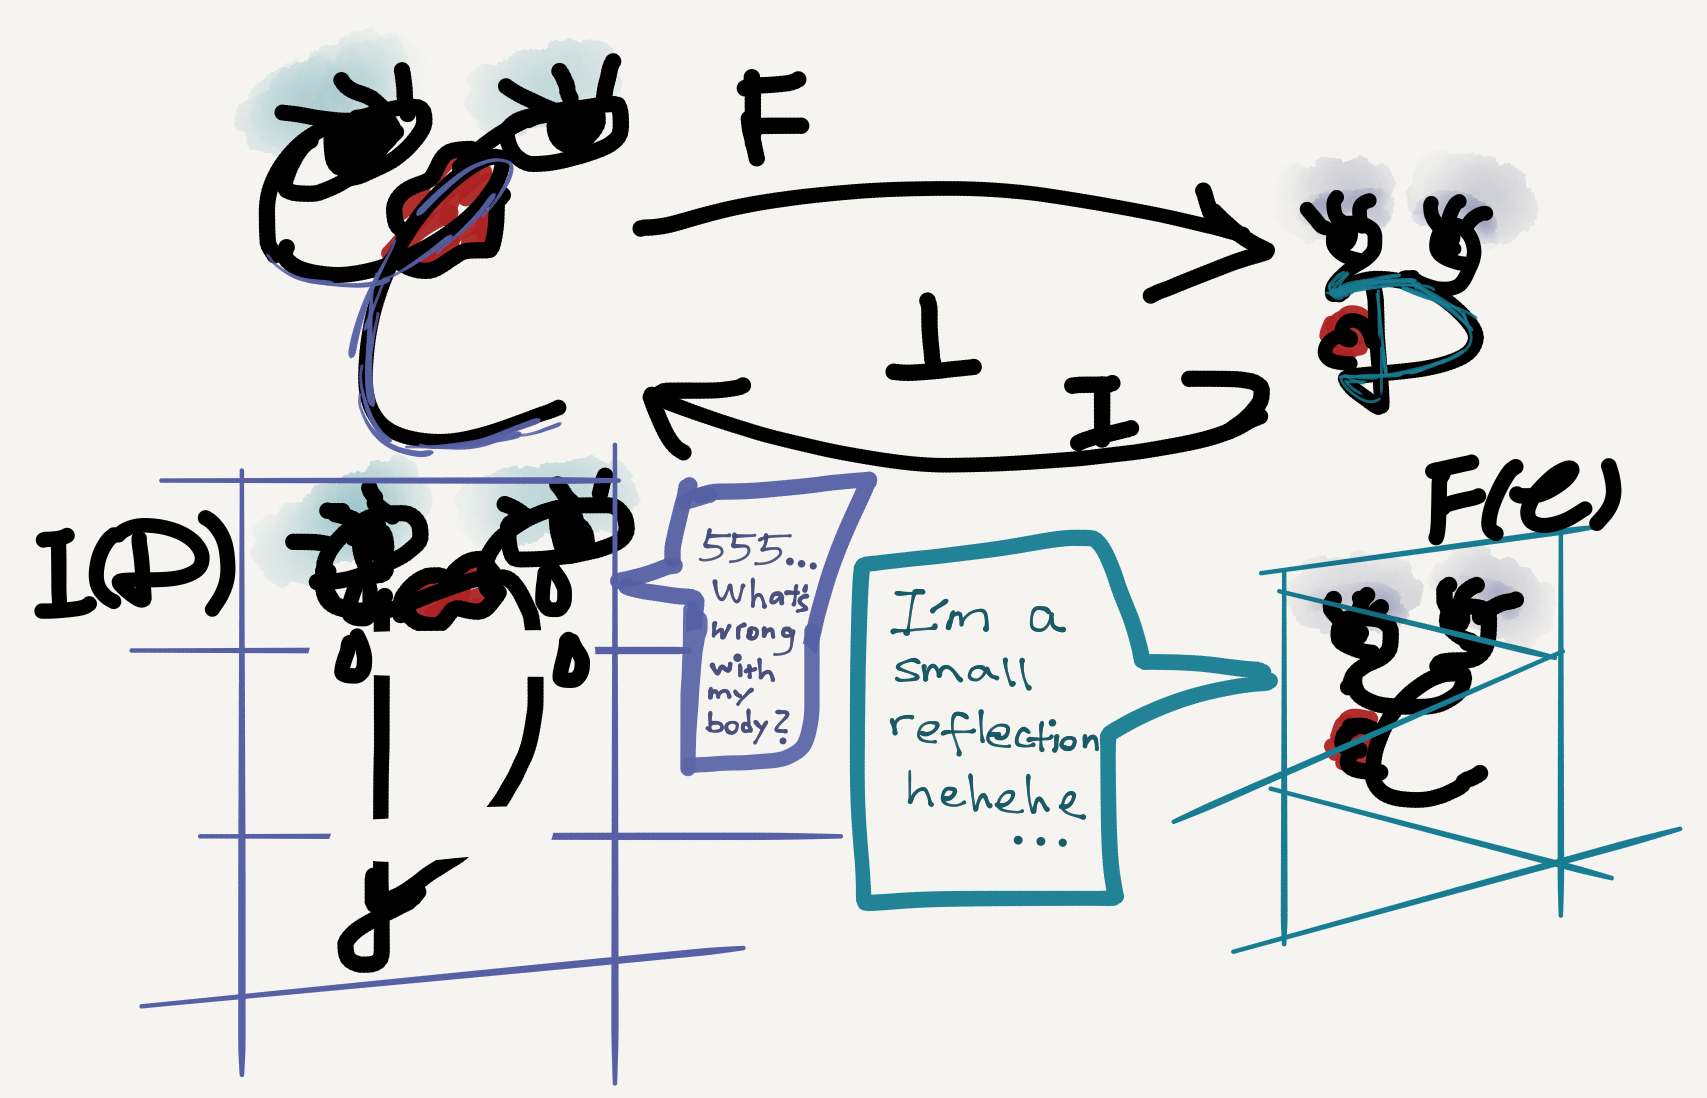 F
⊥
I
C
D
I(D)
F(C)
555...
What's
wrong
with
my
body?
I'm a
small
reflection
hehehe
...